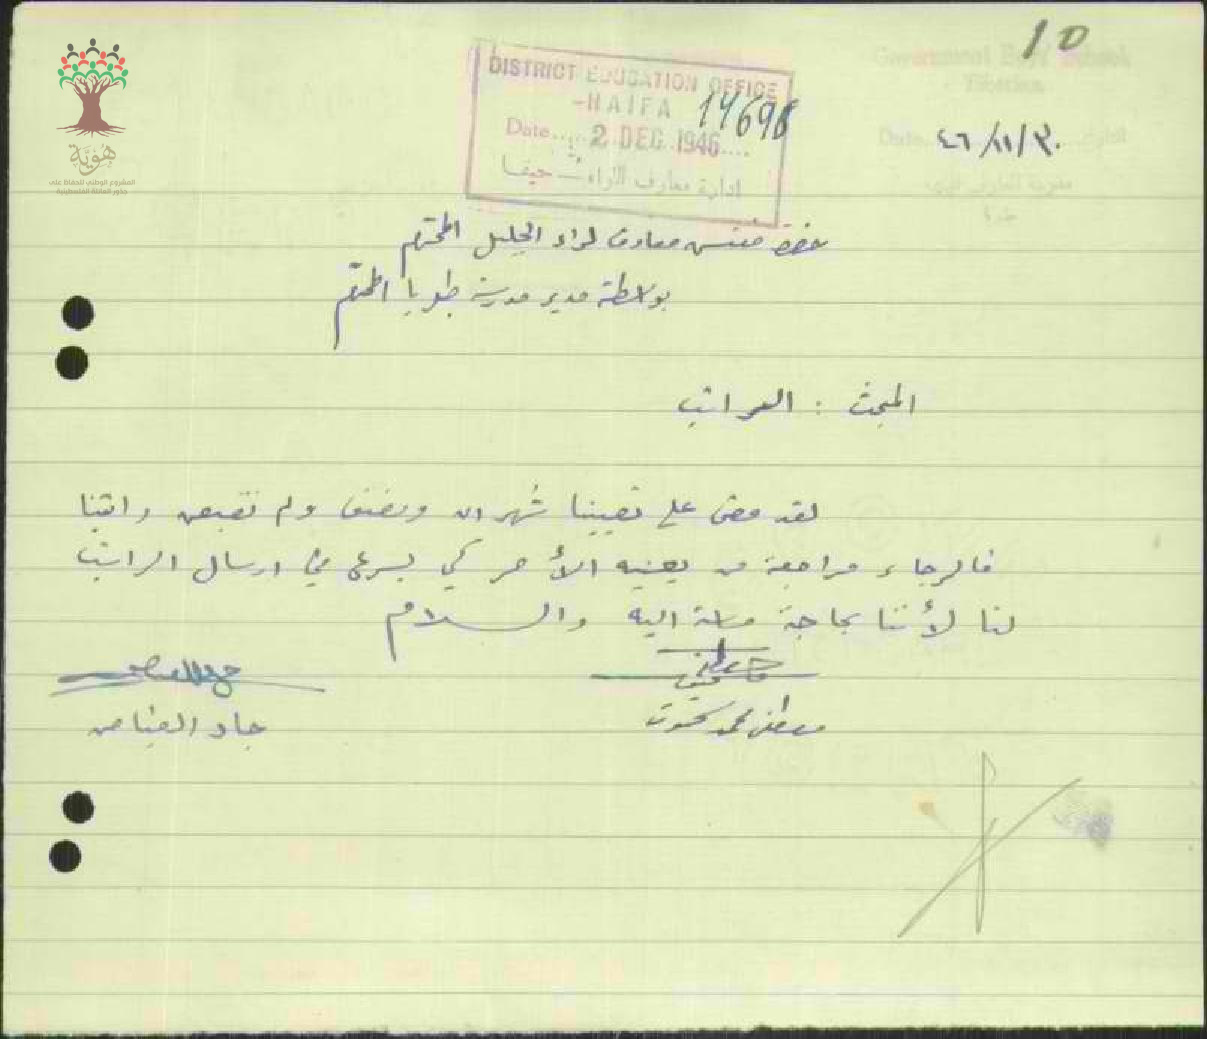 10
Government Boys' School
Tiberias
Date ٤٦/١١/٣٠ التاريخ
DISTRICT EDUCATION OFFICE
-HAIFA
14698
Date..... 2 DEC 1946 ....
ادارة معارف اللواء — حيفا
هُويَّة
المشروع الوطني للحفاظ على
جذور العائلة الفلسطينية
حضرة مفتش معارف لواء الجليل المحترم
بواسطة مدير مدرسة طبريا المحترم
المبحث : الرواتب
لقد مضى على تعييننا شهران ونصف ولم نقبض راتبنا
فالرجاء مراجعة من يعنيه الأمر كي يسرع في ارسال الراتب
لنا لأننا بحاجة ماسة اليه والسلام
مصطفى محمد
جاد